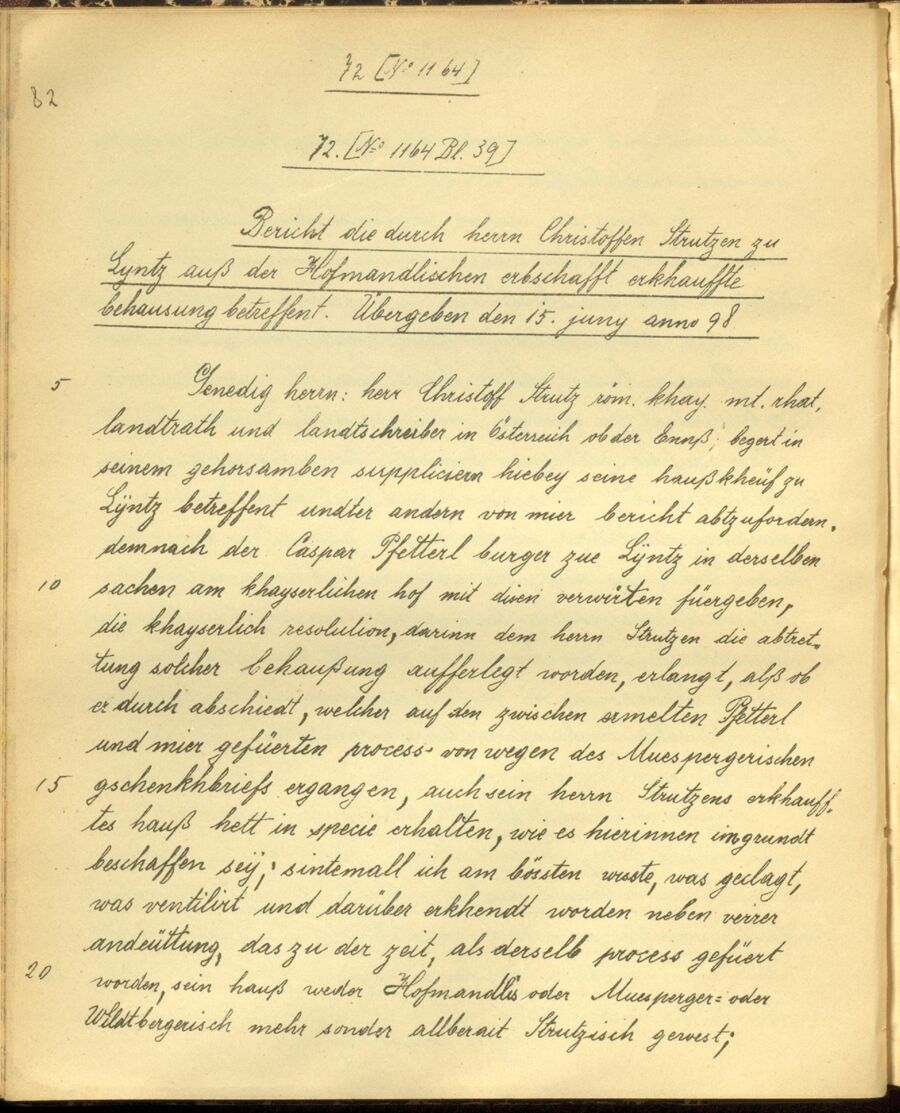 72 [No 1164]
82
72. [No 1164 Bl. 39]
Bericht die durch herrn Christoffen Strutzen zu
Lyntz auß der Hofmandlischen erbschafft erkhauffte
behausung betreffent. Übergeben den 15. juny anno 98
5 Genedig herrn: herr Christoff Strutz röm. khay. mt. rhat,
landtrath und landtschreiber in Österreich ob der Ennß, begert in
seinem gehorsamben suppliciern hiebey seine haußkheüf zu
Lÿntz betreffent undter andern von mier bericht abtzufordern.
demnach der Caspar Pfetterl burger zue Lÿntz in derselben
10 sachen am khayserlichen hof mit disen verwirten füergeben,
die khayserlich resolution, darinn dem herrn Strutzen die abtret-
tung solcher behaußung aufferlegt worden, erlangt, alß ob
er durch abschiedt, welcher auf den zwischen ermelten Pfetterl
und mier gefüerten process von wegen des Muespergerischen
15 gschenkhbriefs ergangen, auch sein herrn Strutzens erkhauff-
tes hauß hett in specie erhalten, wie es hierinnen im grundt
beschaffen seÿ; sintemall ich am bössten wisste, was geclagt,
was ventilirt und darüber erkhendt worden neben verrer
andeüttung, das zu der zeit, als derselb process gefüert
20 worden, sein hauß weder Hofmandlis oder Muesperger= oder
Wildtbergerisch mehr sonder allberait Strutzisch gewest;